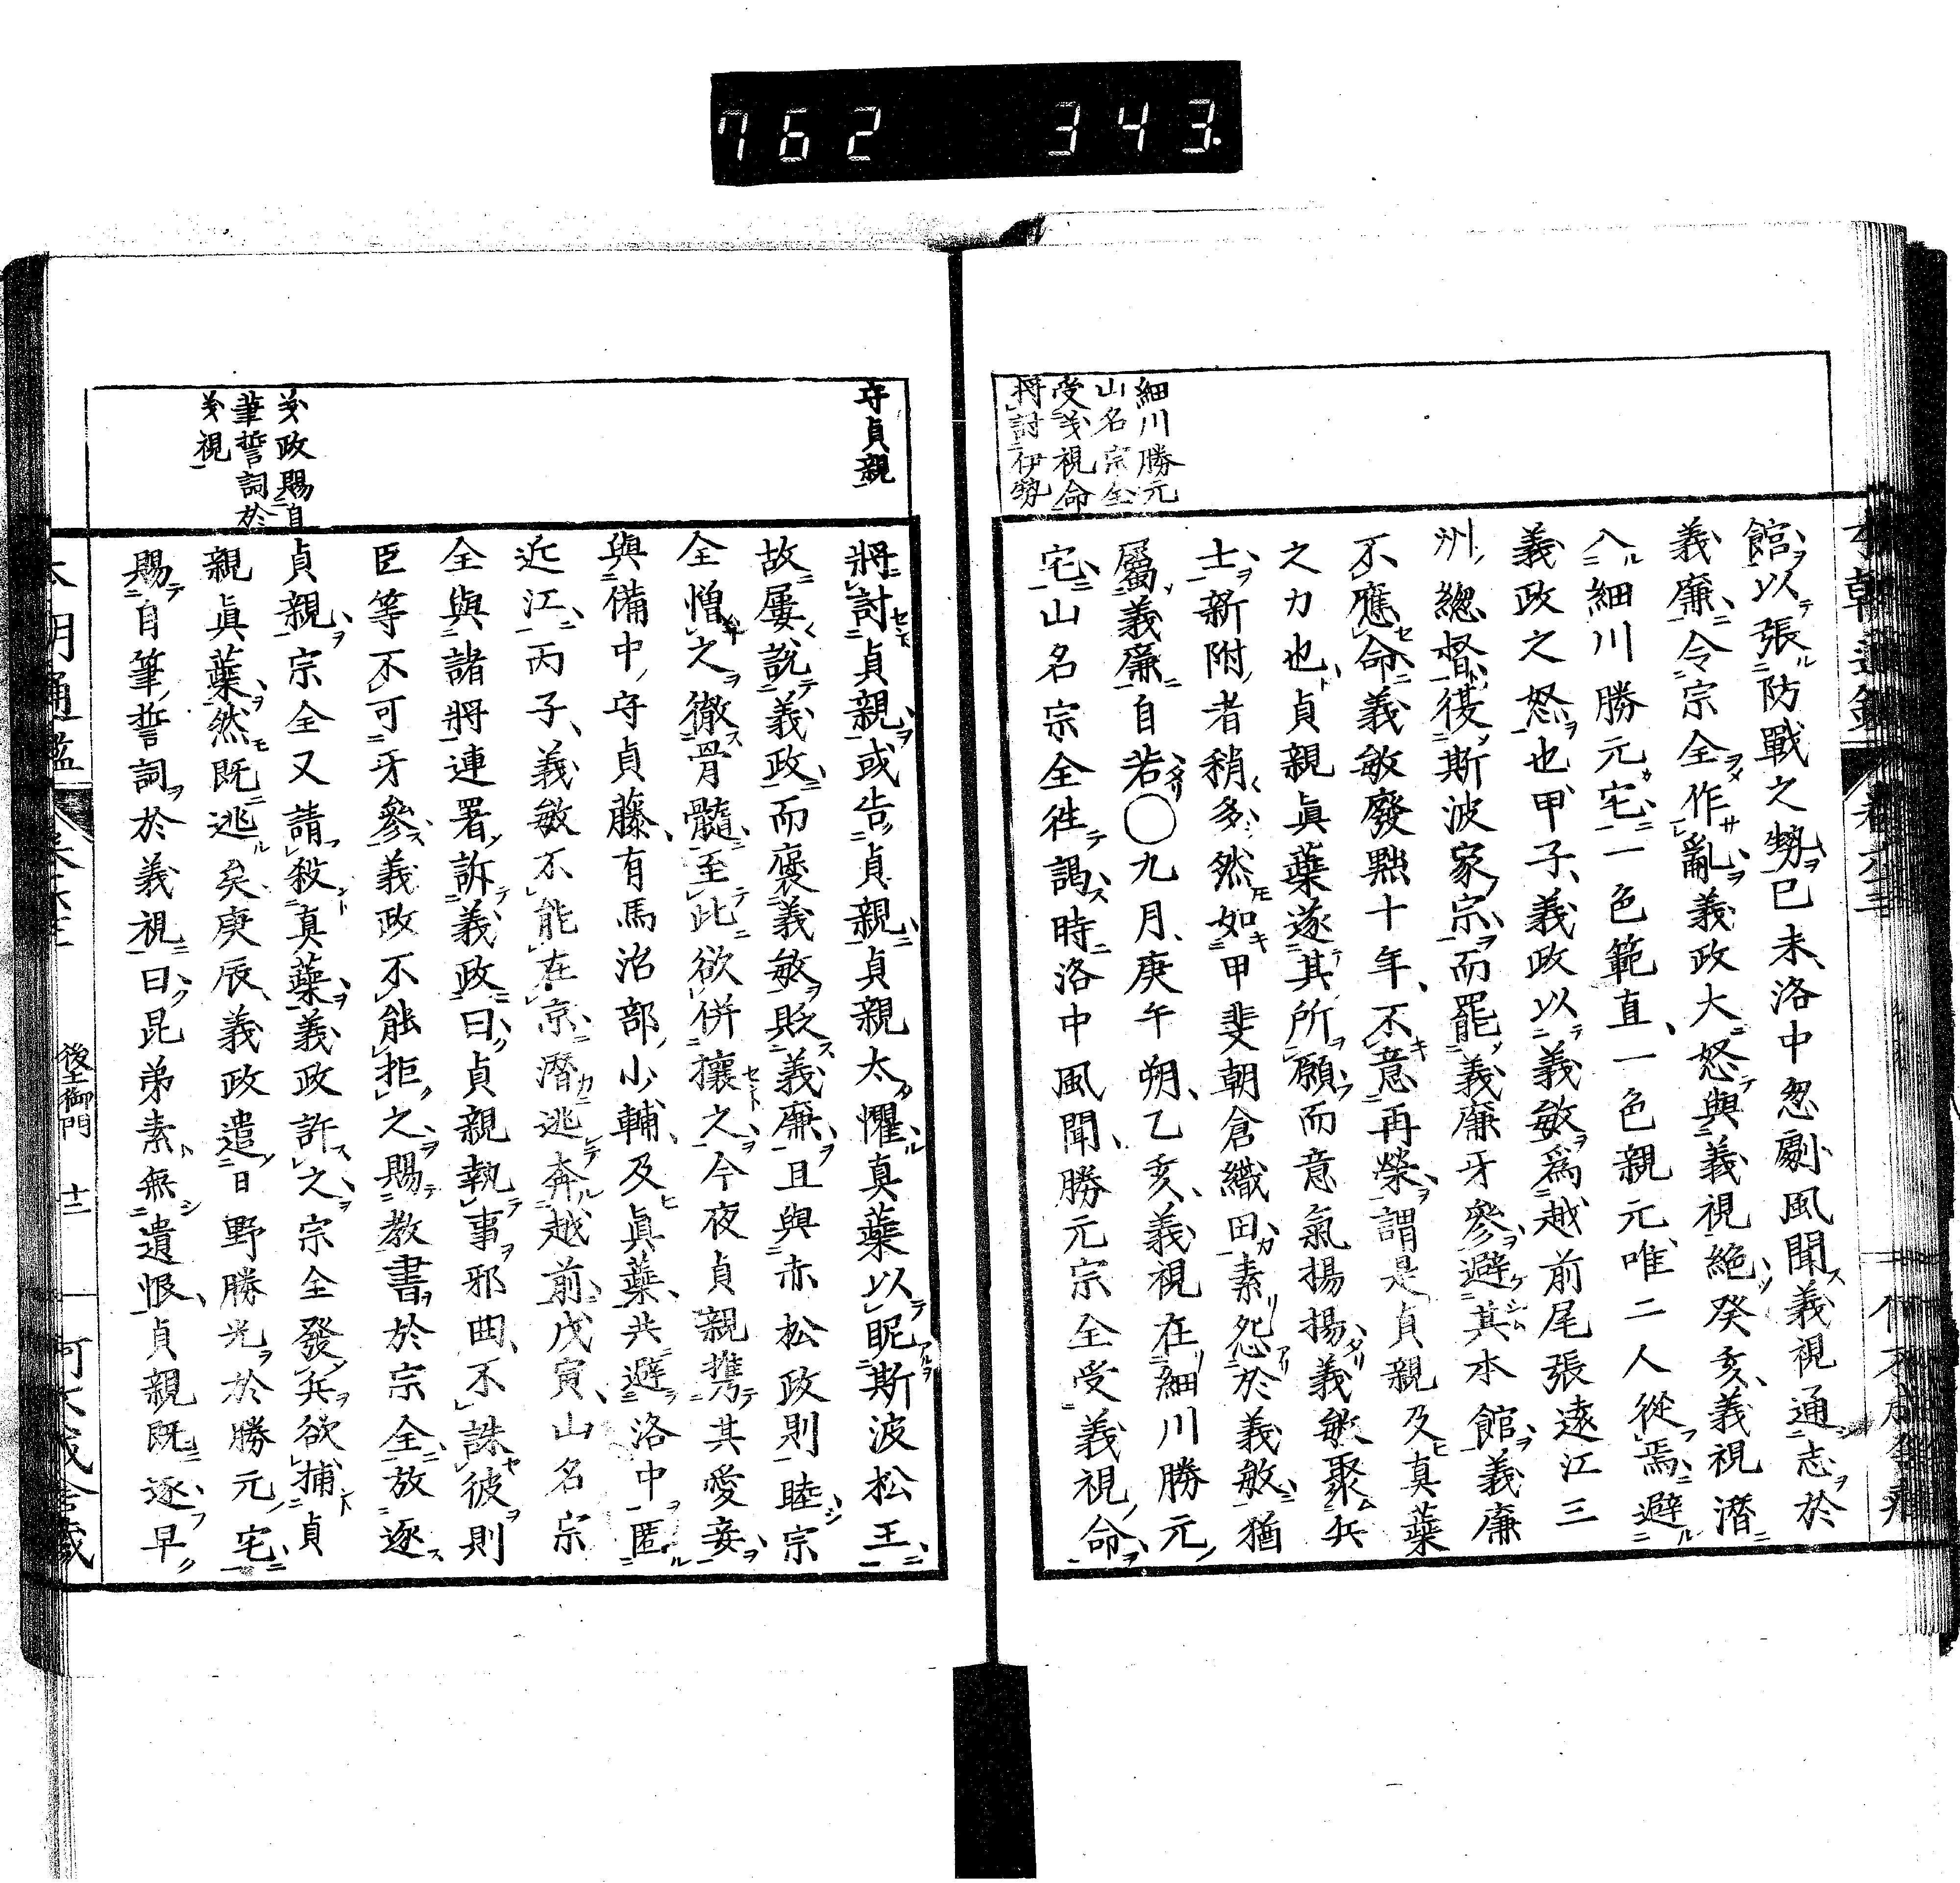 762 343.
細川勝元
山名宗全
受義視命
將討伊勢
館以張防戰之勢己未洛中怱劇風聞義視通志於
義廉令宗全作亂義政大怒與義視絶癸亥義視潛
入細川勝元宅一色範直一色親元唯二人從焉避
義政之怒也甲子義政以義敏爲越前尾張遠江三
洲總督復斯波家宗而罷義廉牙參避其本館義廉
不應命義敏廢黜十年不意再榮謂是貞親及真蘂
之力也貞親眞蘂遂其所願而意氣揚揚義敏聚兵
士新附者稍多然如甲斐朝倉織田素怨於義敏猶
屬義廉自若○九月庚午朔乙亥義視在細川勝元
宅山名宗全徃謁時洛中風聞勝元宗全受義視命
守貞親
義政賜自
筆誓詞於
義視
將討貞親或告貞親貞親太懼真蘂以昵斯波松王
故屢説義政而褒義敏貶義廉且與赤松政則睦宗
全憎之徹骨髓至此欲併攘之今夜貞親携其愛妾
與備中守貞藤有馬治部少輔及眞蘂共避洛中匿
近江丙子義敏不能在京潛逃奔越前戊寅山名宗
全與諸將連署訴義政曰貞親執事邪曲不誅彼則
臣等不可牙參義政不能拒之賜教書於宗全放逐
貞親宗全又請殺真蘂義政許之宗全發兵欲捕貞
親眞蘂然既逃矣庚辰義政遣日野勝光於勝元宅
賜自筆誓詞於義視曰昆弟素無遺恨貞親既逐早
後土御門 十二